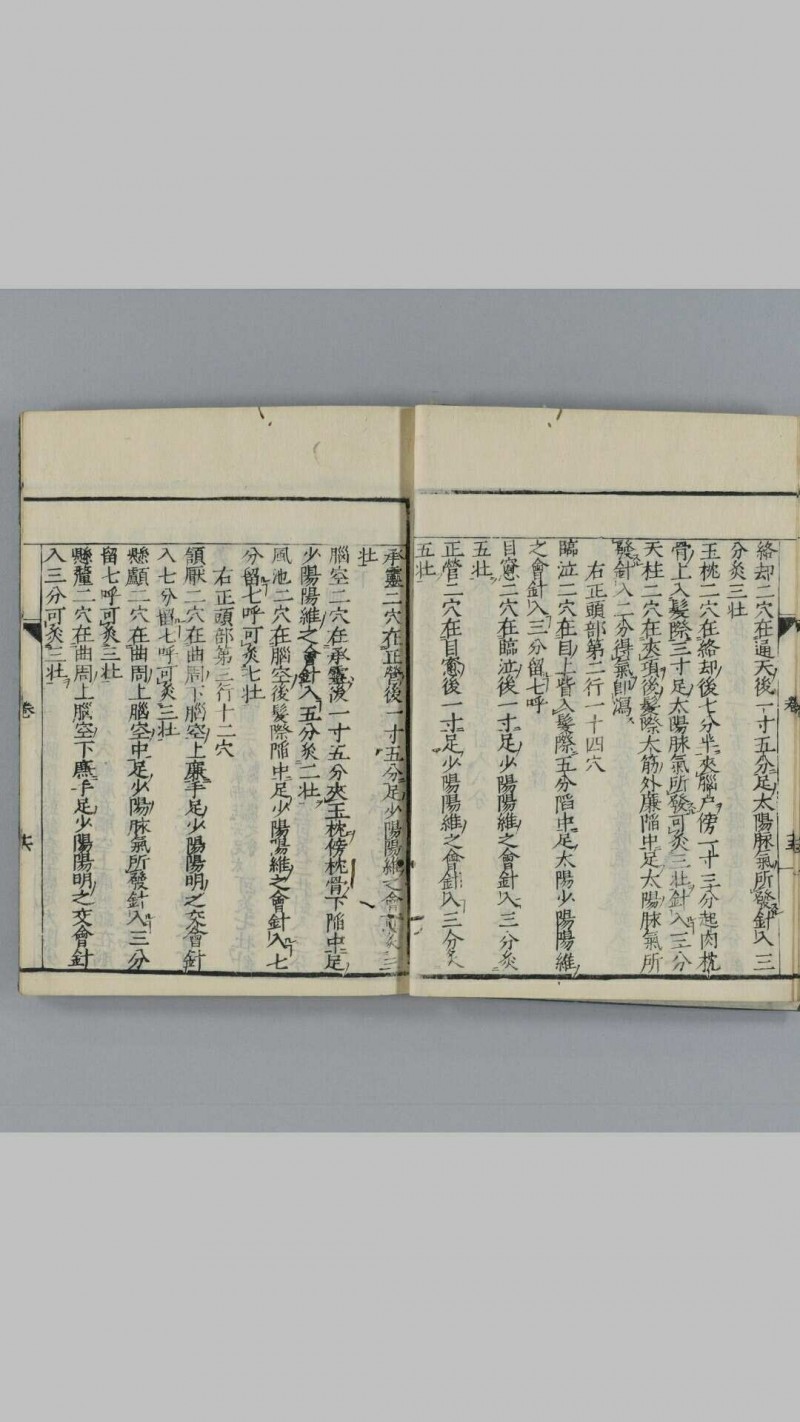 絡却二穴在通天後一寸五分足太陽脉氣所發針入三
分灸三壮
玉枕二穴在絡却後七分半夾腦户傍一寸三分起肉枕
骨上入髮際三寸足太陽脉氣所發可灸三壮針入三分
天柱二穴在夾項後髮際大筋外廉陥中足太陽脉氣所
發針入二分得氣即瀉
右正頭部第二行一十四穴
臨泣二穴在目上眥入髮際五分陥中足太陽少陽陽維
之會針入三分留七呼
目窻二穴在臨泣後一寸足少陽陽維之會針入三分灸
五壮
正營二穴在目窻後一寸足少陽陽維之會針入三分灸
五壮
承靈二穴在正營後一寸五分足少陽陽維之會灸三
壮
腦空二穴在承靈後一寸五分夾玉枕傍枕骨下陥中足
少陽陽維之會針入五分灸二壮
風池二穴在腦空後髮際陥中足少陽陽維之會針入七
分留七呼可灸七壮
右正頭部第三行十二穴
頷厭二穴在曲周下腦空上廉手足少陽陽明之交會針
入七分留七呼可灸三壮
懸顱二穴在曲周上腦空中足少陽脉氣所發針入三分
留七呼可灸三壮
懸釐二穴在曲周上腦空下廉手足少陽陽明之交會針
入三分可灸三壮
卷
六